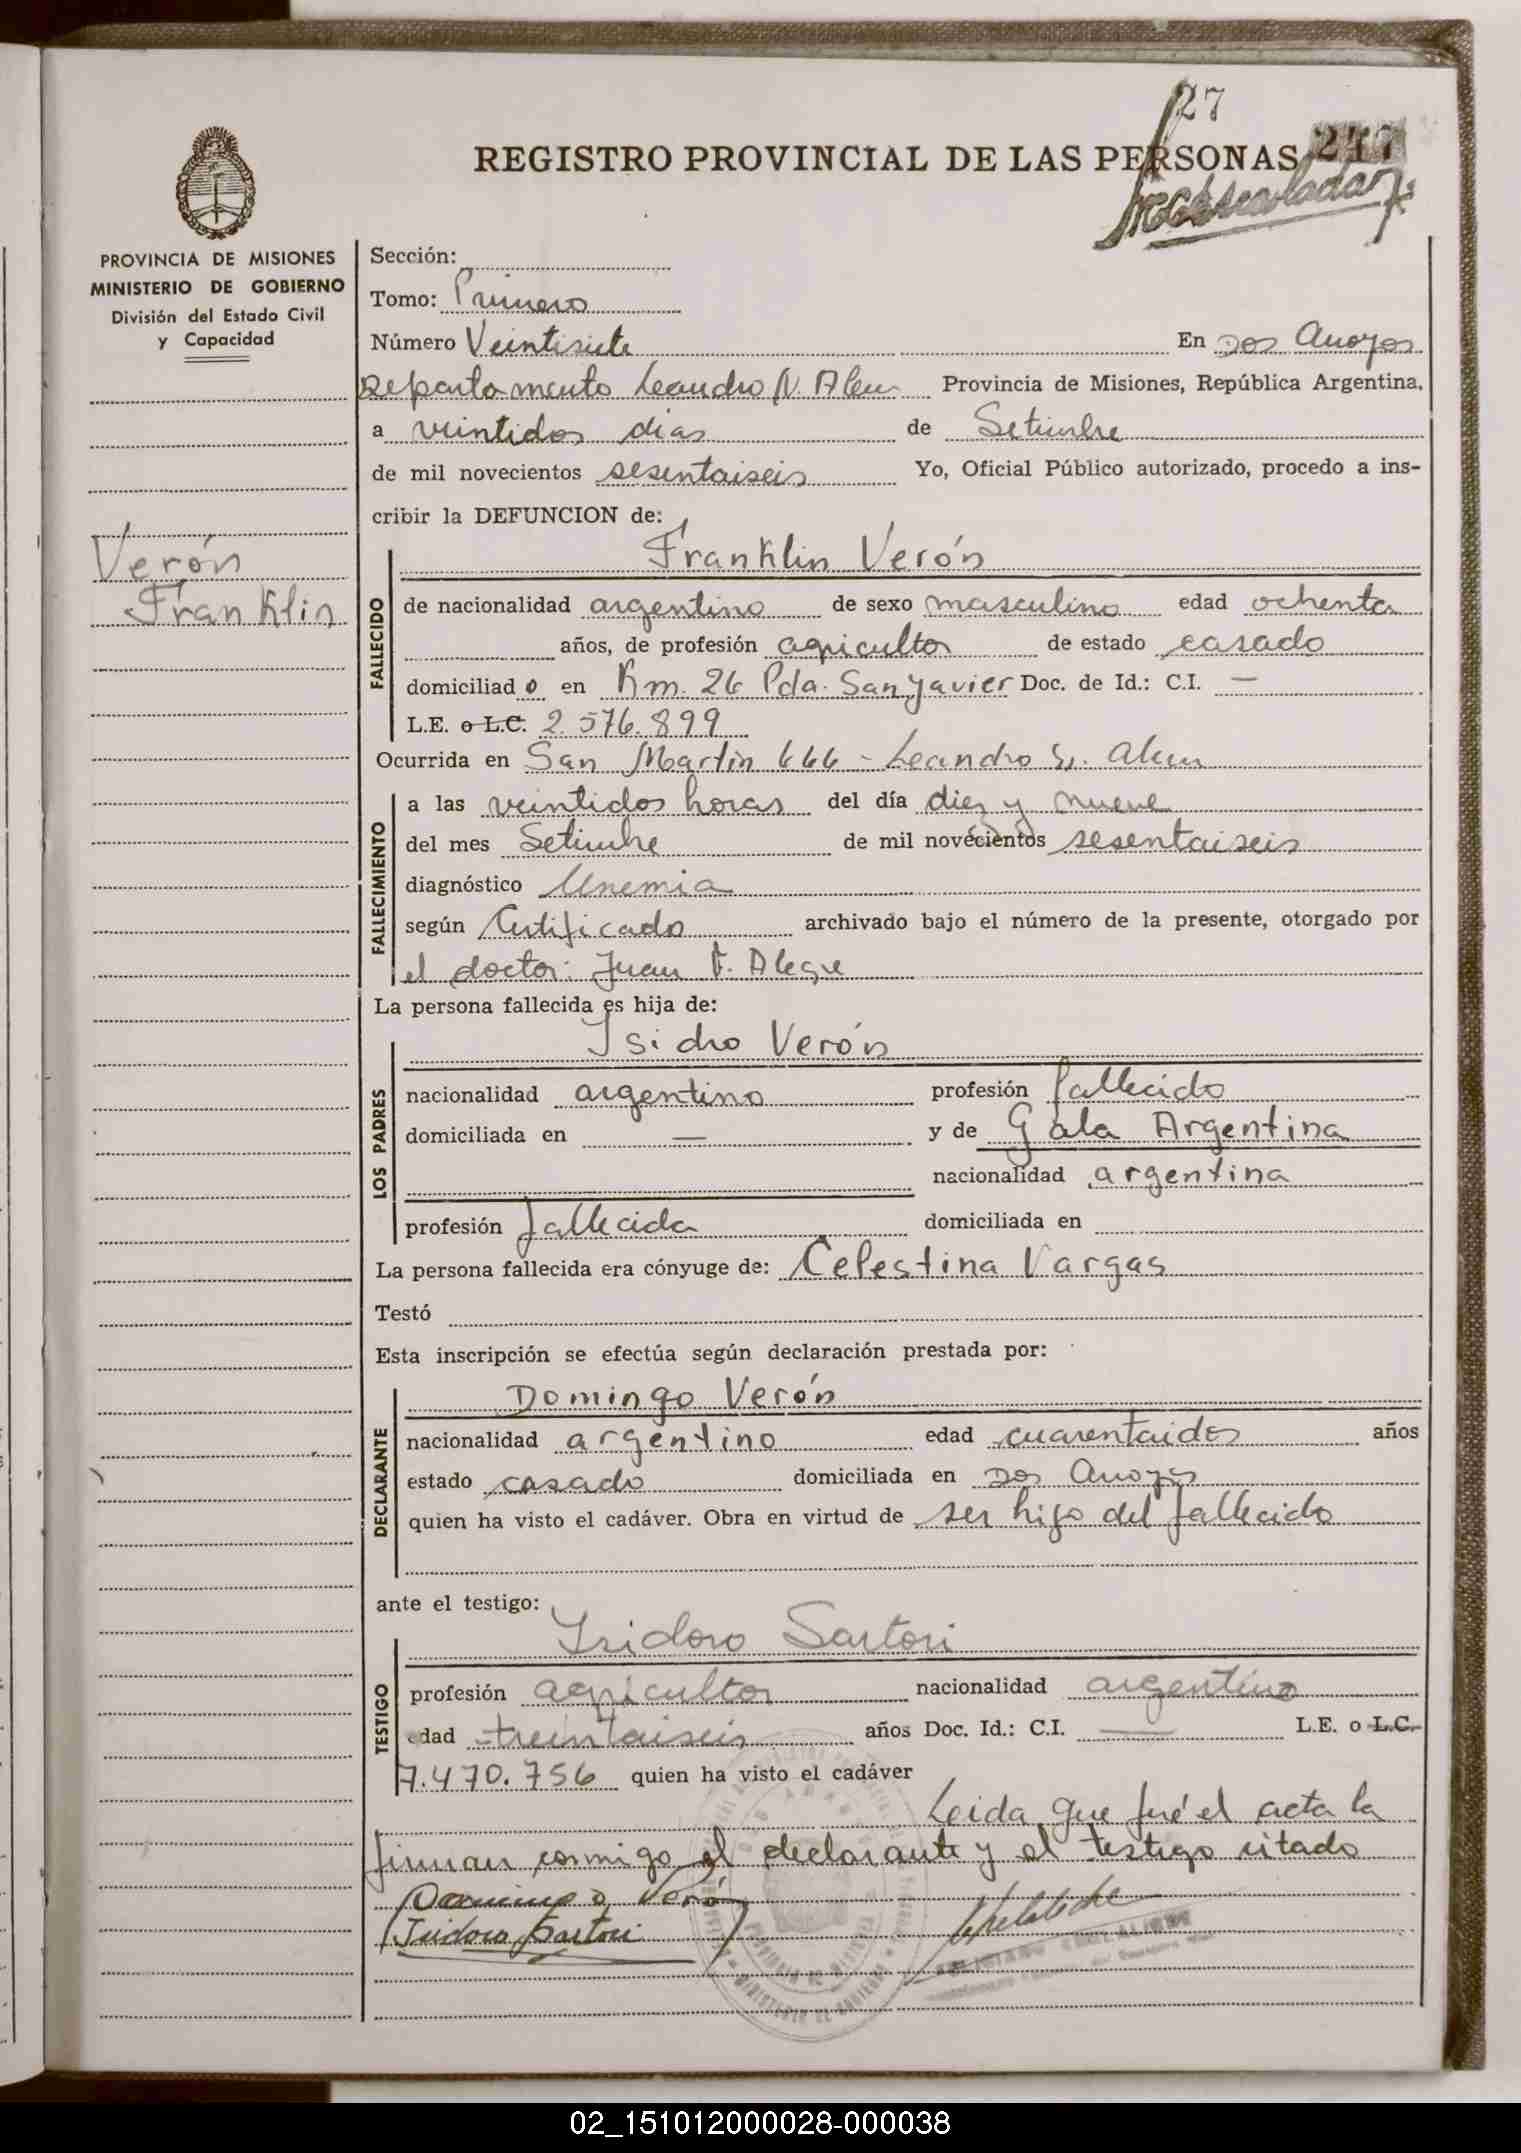 27
REGISTRO PROVINCIAL DE LAS PERSONAS
PROVINCIA DE MISIONES
MINISTERIO DE GOBIERNO
División del Estado Civil
y Capacidad
Verón
Franklin
Sección:
Tomo: Primero
Número Veintisiete En Dos Arroyos
Departamento Leandro N. Alem Provincia de Misiones, República Argentina,
a veintidos dias de Setiembre
de mil novecientos sesentaiseis Yo, Oficial Público autorizado, procedo a ins-
cribir la DEFUNCION de:
Franklin Verón
FALLECIDO
de nacionalidad argentino de sexo masculino edad ochenta
años, de profesión agricultor de estado casado
domiciliado en Km. 26 Pda. San Yavier Doc. de Id.: C.I. —
L.E. o L.C. 2.576.899
Ocurrida en San Martin 666 - Leandro N. Alem
FALLECIMIENTO
a las veintidos horas del día diez y nueve
del mes Setiembre de mil novecientos sesentaiseis
diagnóstico Uremia
según Certificado archivado bajo el número de la presente, otorgado por
el doctor: Juan F. Alegre
La persona fallecida es hija de:
Isidro Verón
LOS PADRES
nacionalidad argentino profesión fallecido
domiciliada en — y de Gala Argentina
nacionalidad argentina
profesión fallecida domiciliada en
La persona fallecida era cónyuge de: Celestina Vargas
Testó
Esta inscripción se efectúa según declaración prestada por:
Domingo Verón
DECLARANTE
nacionalidad argentino edad cuarentaidos años
estado casado domiciliada en Dos Arroyos
quien ha visto el cadáver. Obra en virtud de ser hijo del fallecido
ante el testigo:
Isidoro Sartori
TESTIGO
profesión agricultor nacionalidad argentino
edad treintaiseis años Doc. Id.: C.I. — L.E. o L.C.
7.470.756 quien ha visto el cadáver
Leida que fué el acta la
firman conmigo el declarante y el testigo citado
Domingo Verón
Isidoro Sartori
02_151012000028-000038